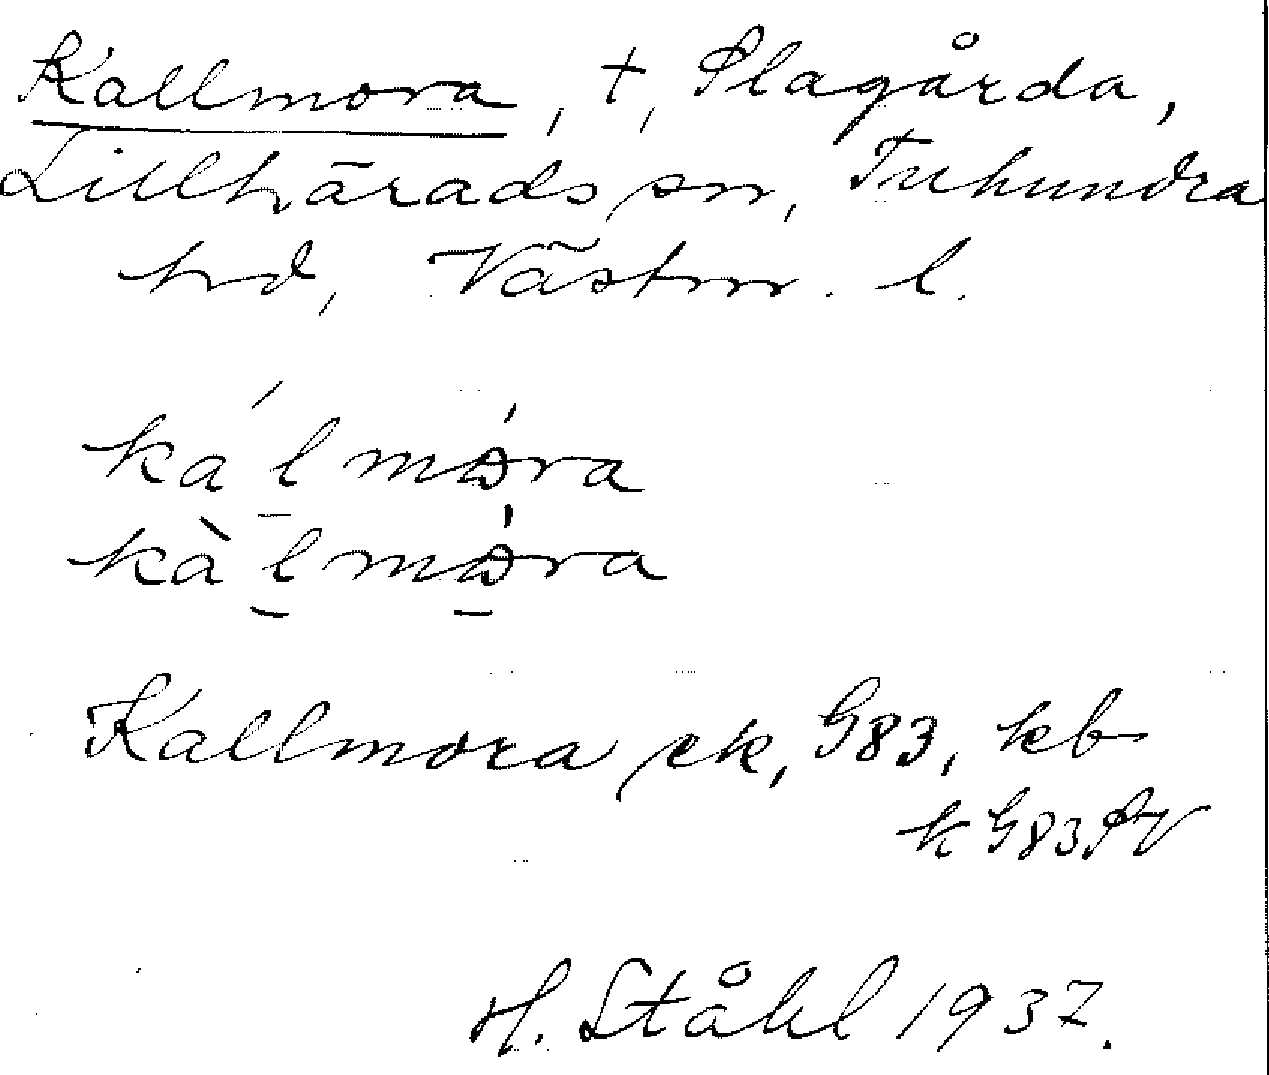 Kallmora, †, Plagårda,
Lillhärads sn, Tuhundra
hd, Västm. l.
ka´l mɔ́ra
kàl mɔ́ra
Kallmora ek, G83, kb
k G83 PV
H. Ståhl 1937.